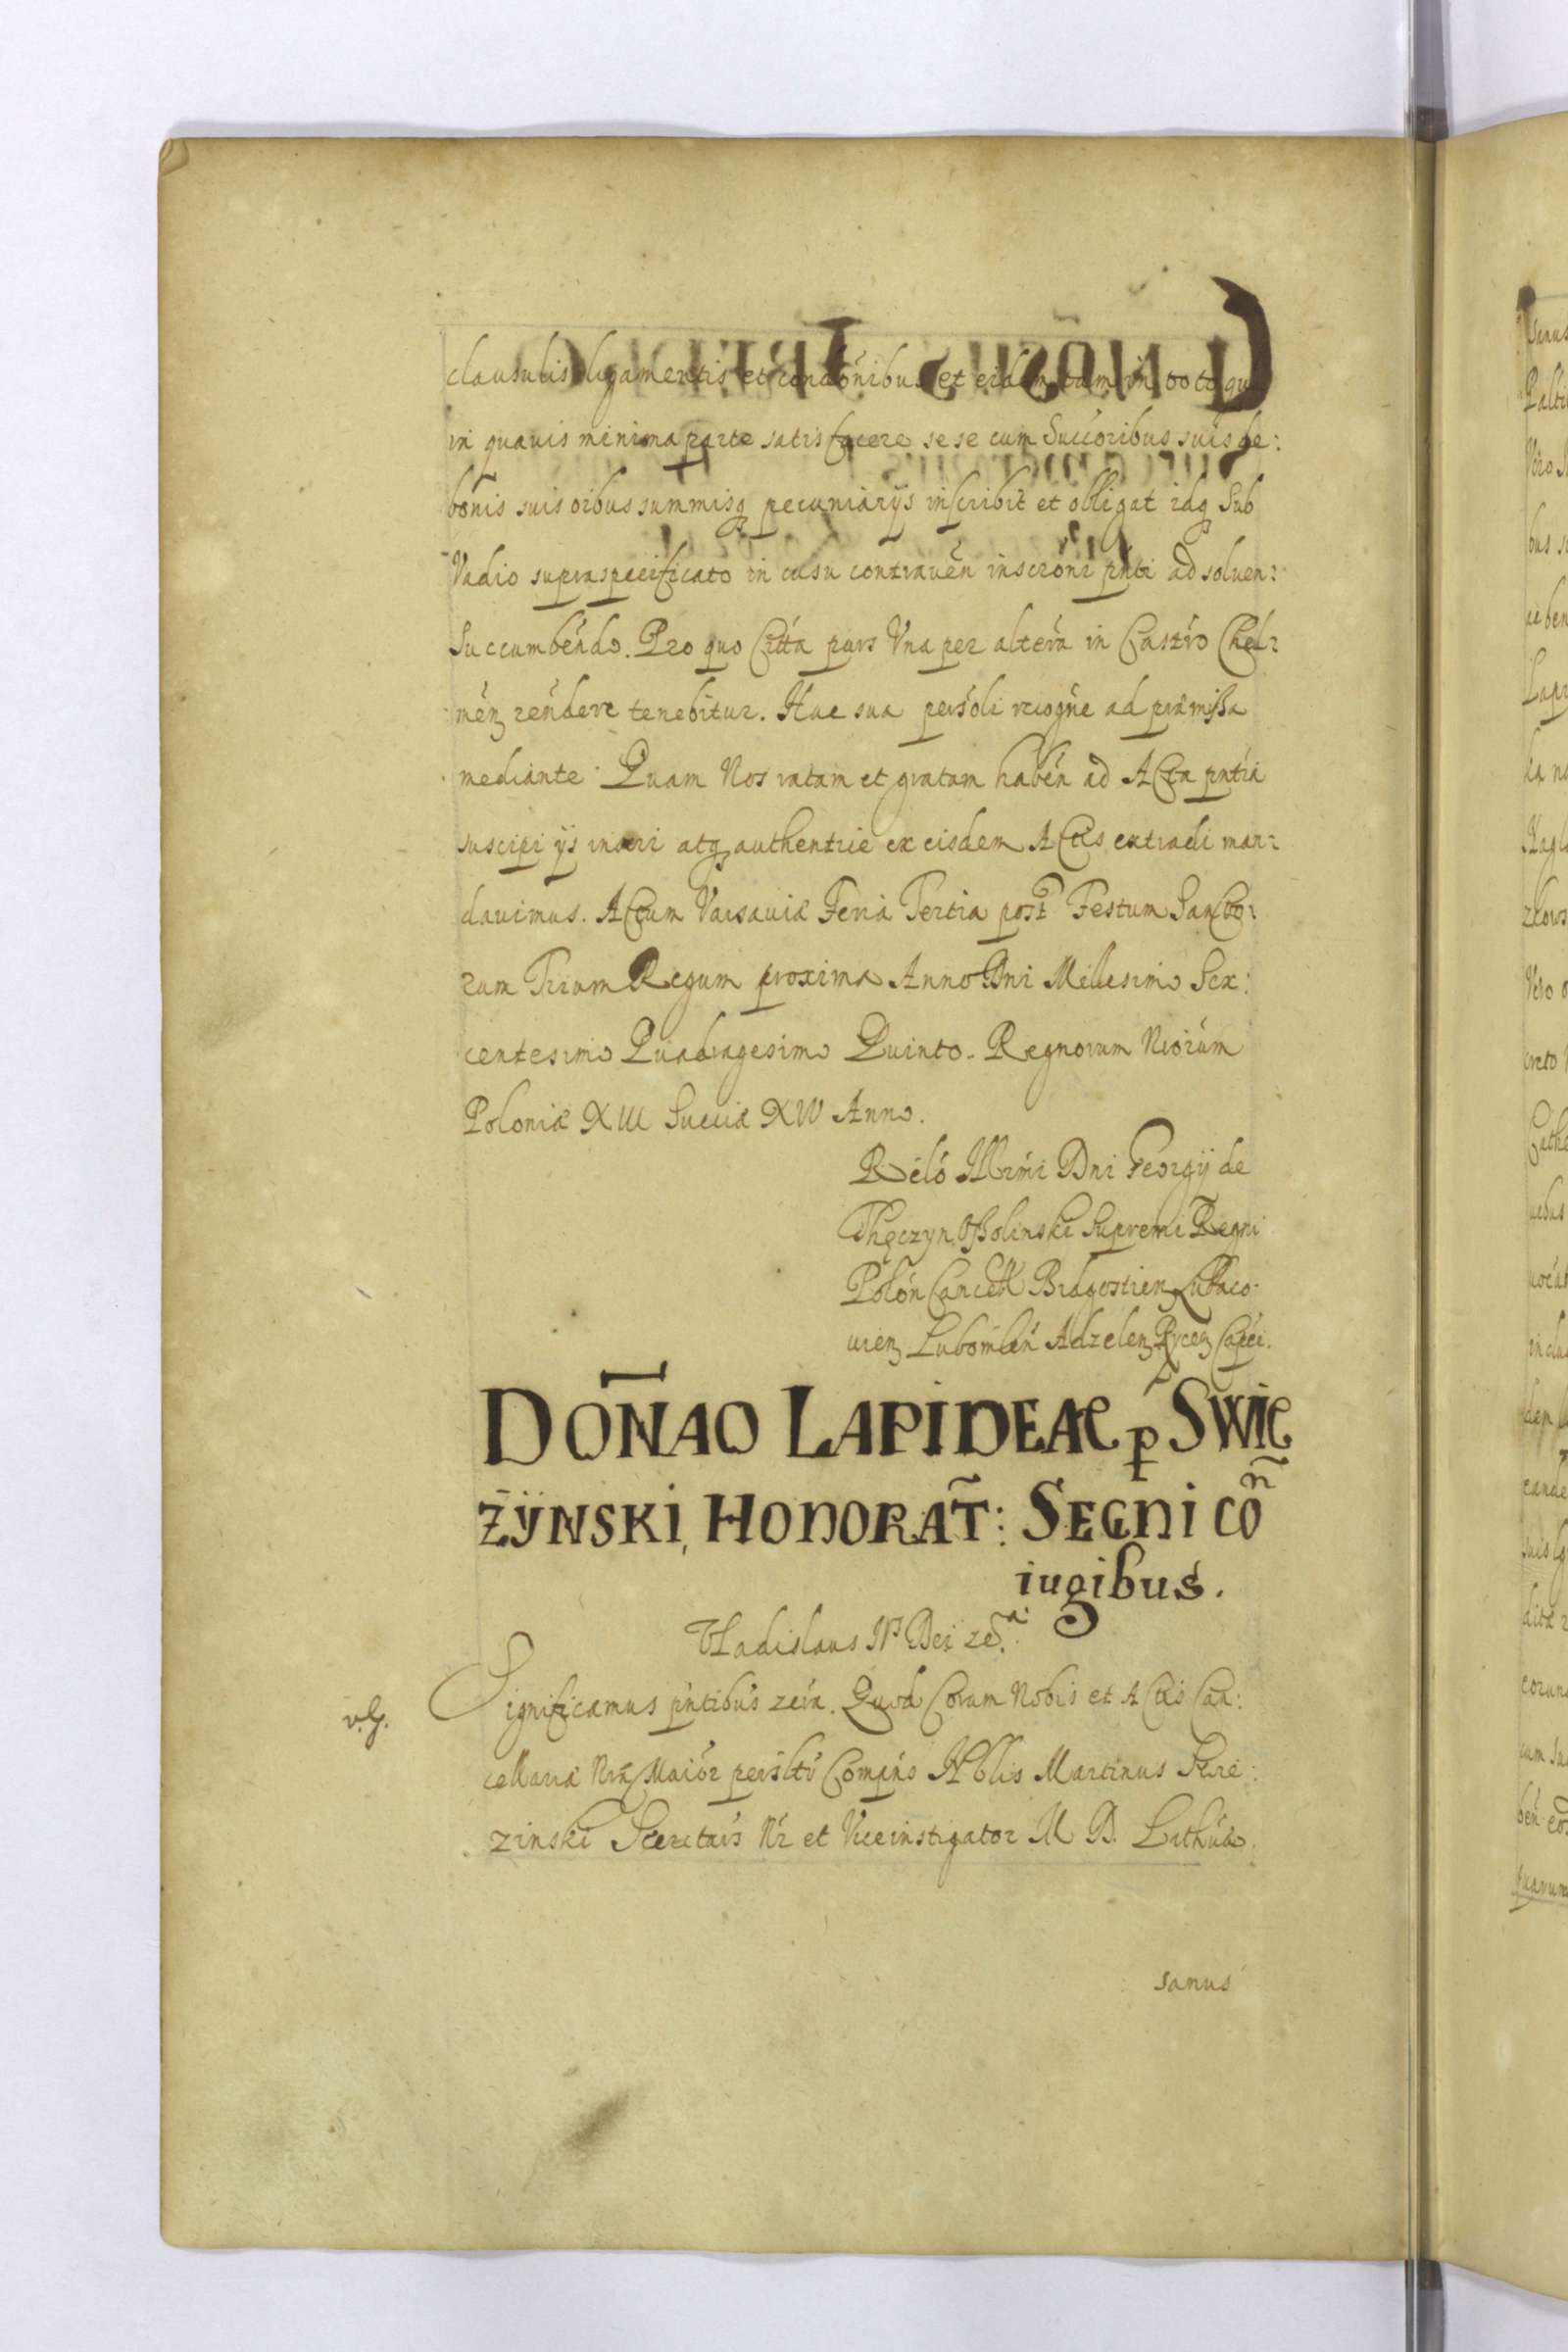 clausulis ligamentis et condonibus et eidem tam in toto qu
in quauis minima parte satisfacere sese cum Succoribus suis de:
bonis suis oibus summisq pecuniarijs inscribit et obligat idq Sub
Vadio supraspecificato in casu contrauen inscroni pnti ad soluen:
Succumbendo. Pro quo Citta pars Vna per altera in Castro Chel:
nen rendere tenebitur. Hac sua persoli recogne ad præmissa
mediante. Quam Nos ratam et gratam haben ad Acta pntia
suscipi ijs inseri atq authentice ex eisdem Actis extradi man:
dauimus. Actum Varsauiæ Feria Tertia post Festum Sancto:
rum Trium Regum proxima Anno Dni Millesimo Sex:
centesimo Quadragesimo Quinto. Regnorum Nrorum
Poloniæ XIII Sueciæ XIV Anno.
Relo Illrmi Dni Georgij de
Thęczyn Ossolinski Supremi Regni
Polon Cancell Bidgostien Lubaco:
uien Lubomlen Adzelen Rycen Capei.
DOÑAO LAPIDEAE p SWIE
ZŸNSKI, HONORAT̃: SEGNI CO
iugibus.
Vladislaus IV Dei ze.a
Significamus pntibus zeia. Quod Coram Nobis et Actis Can:
cellariæ Nræ Maior persltr Compns Nblis Martinus Swie:
zinski Secretars Nr et Viceinstigator M D. Lithuæ
v.G.
sanus